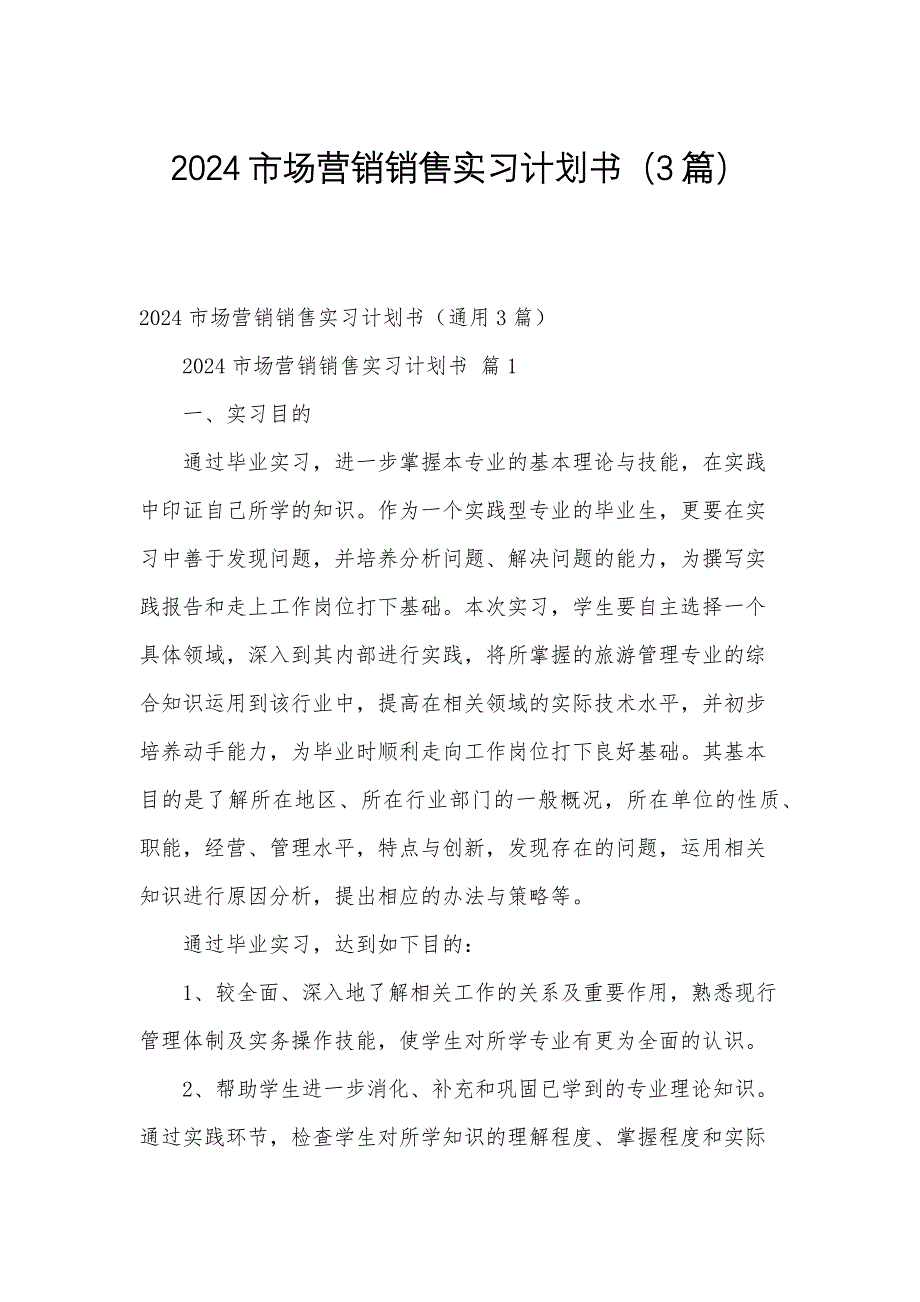 2024 市场营销销售实习计划书（3 篇）
2024 市场营销销售实习计划书（通用 3 篇）
2024 市场营销销售实习计划书 篇 1
一、实习目的
通过毕业实习，进一步掌握本专业的基本理论与技能，在实践
中印证自己所学的知识。作为一个实践型专业的毕业生，更要在实
习中善于发现问题，并培养分析问题、解决问题的能力，为撰写实
践报告和走上工作岗位打下基础。本次实习，学生要自主选择一个
具体领域，深入到其内部进行实践，将所掌握的旅游管理专业的综
合知识运用到该行业中，提高在相关领域的实际技术水平，并初步
培养动手能力，为毕业时顺利走向工作岗位打下良好基础。其基本
目的是了解所在地区、所在行业部门的一般概况，所在单位的性质、
职能，经营、管理水平，特点与创新，发现存在的问题，运用相关
知识进行原因分析，提出相应的办法与策略等。
通过毕业实习，达到如下目的：
1、较全面、深入地了解相关工作的关系及重要作用，熟悉现行
管理体制及实务操作技能，使学生对所学专业有更为全面的认识。
2、帮助学生进一步消化、补充和巩固已学到的专业理论知识。
通过实践环节，检查学生对所学知识的理解程度、掌握程度和实际